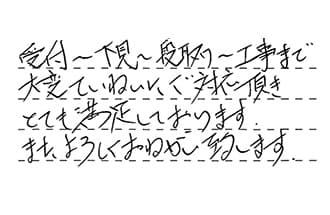 受付～下見～段取り～工事まで
大変ていねいに、ご対応頂き
とても満足しております。
また、よろしくおねがい致します。